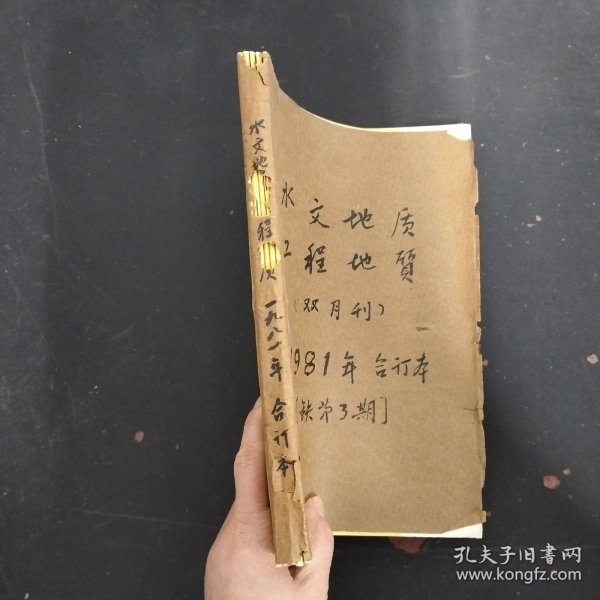 水文地质
工程地質
(双月刊)
1981年合订本
[缺第3期]
水文地
程
质
一九八一年合订本
孔夫子旧書网
www.kongfz.com